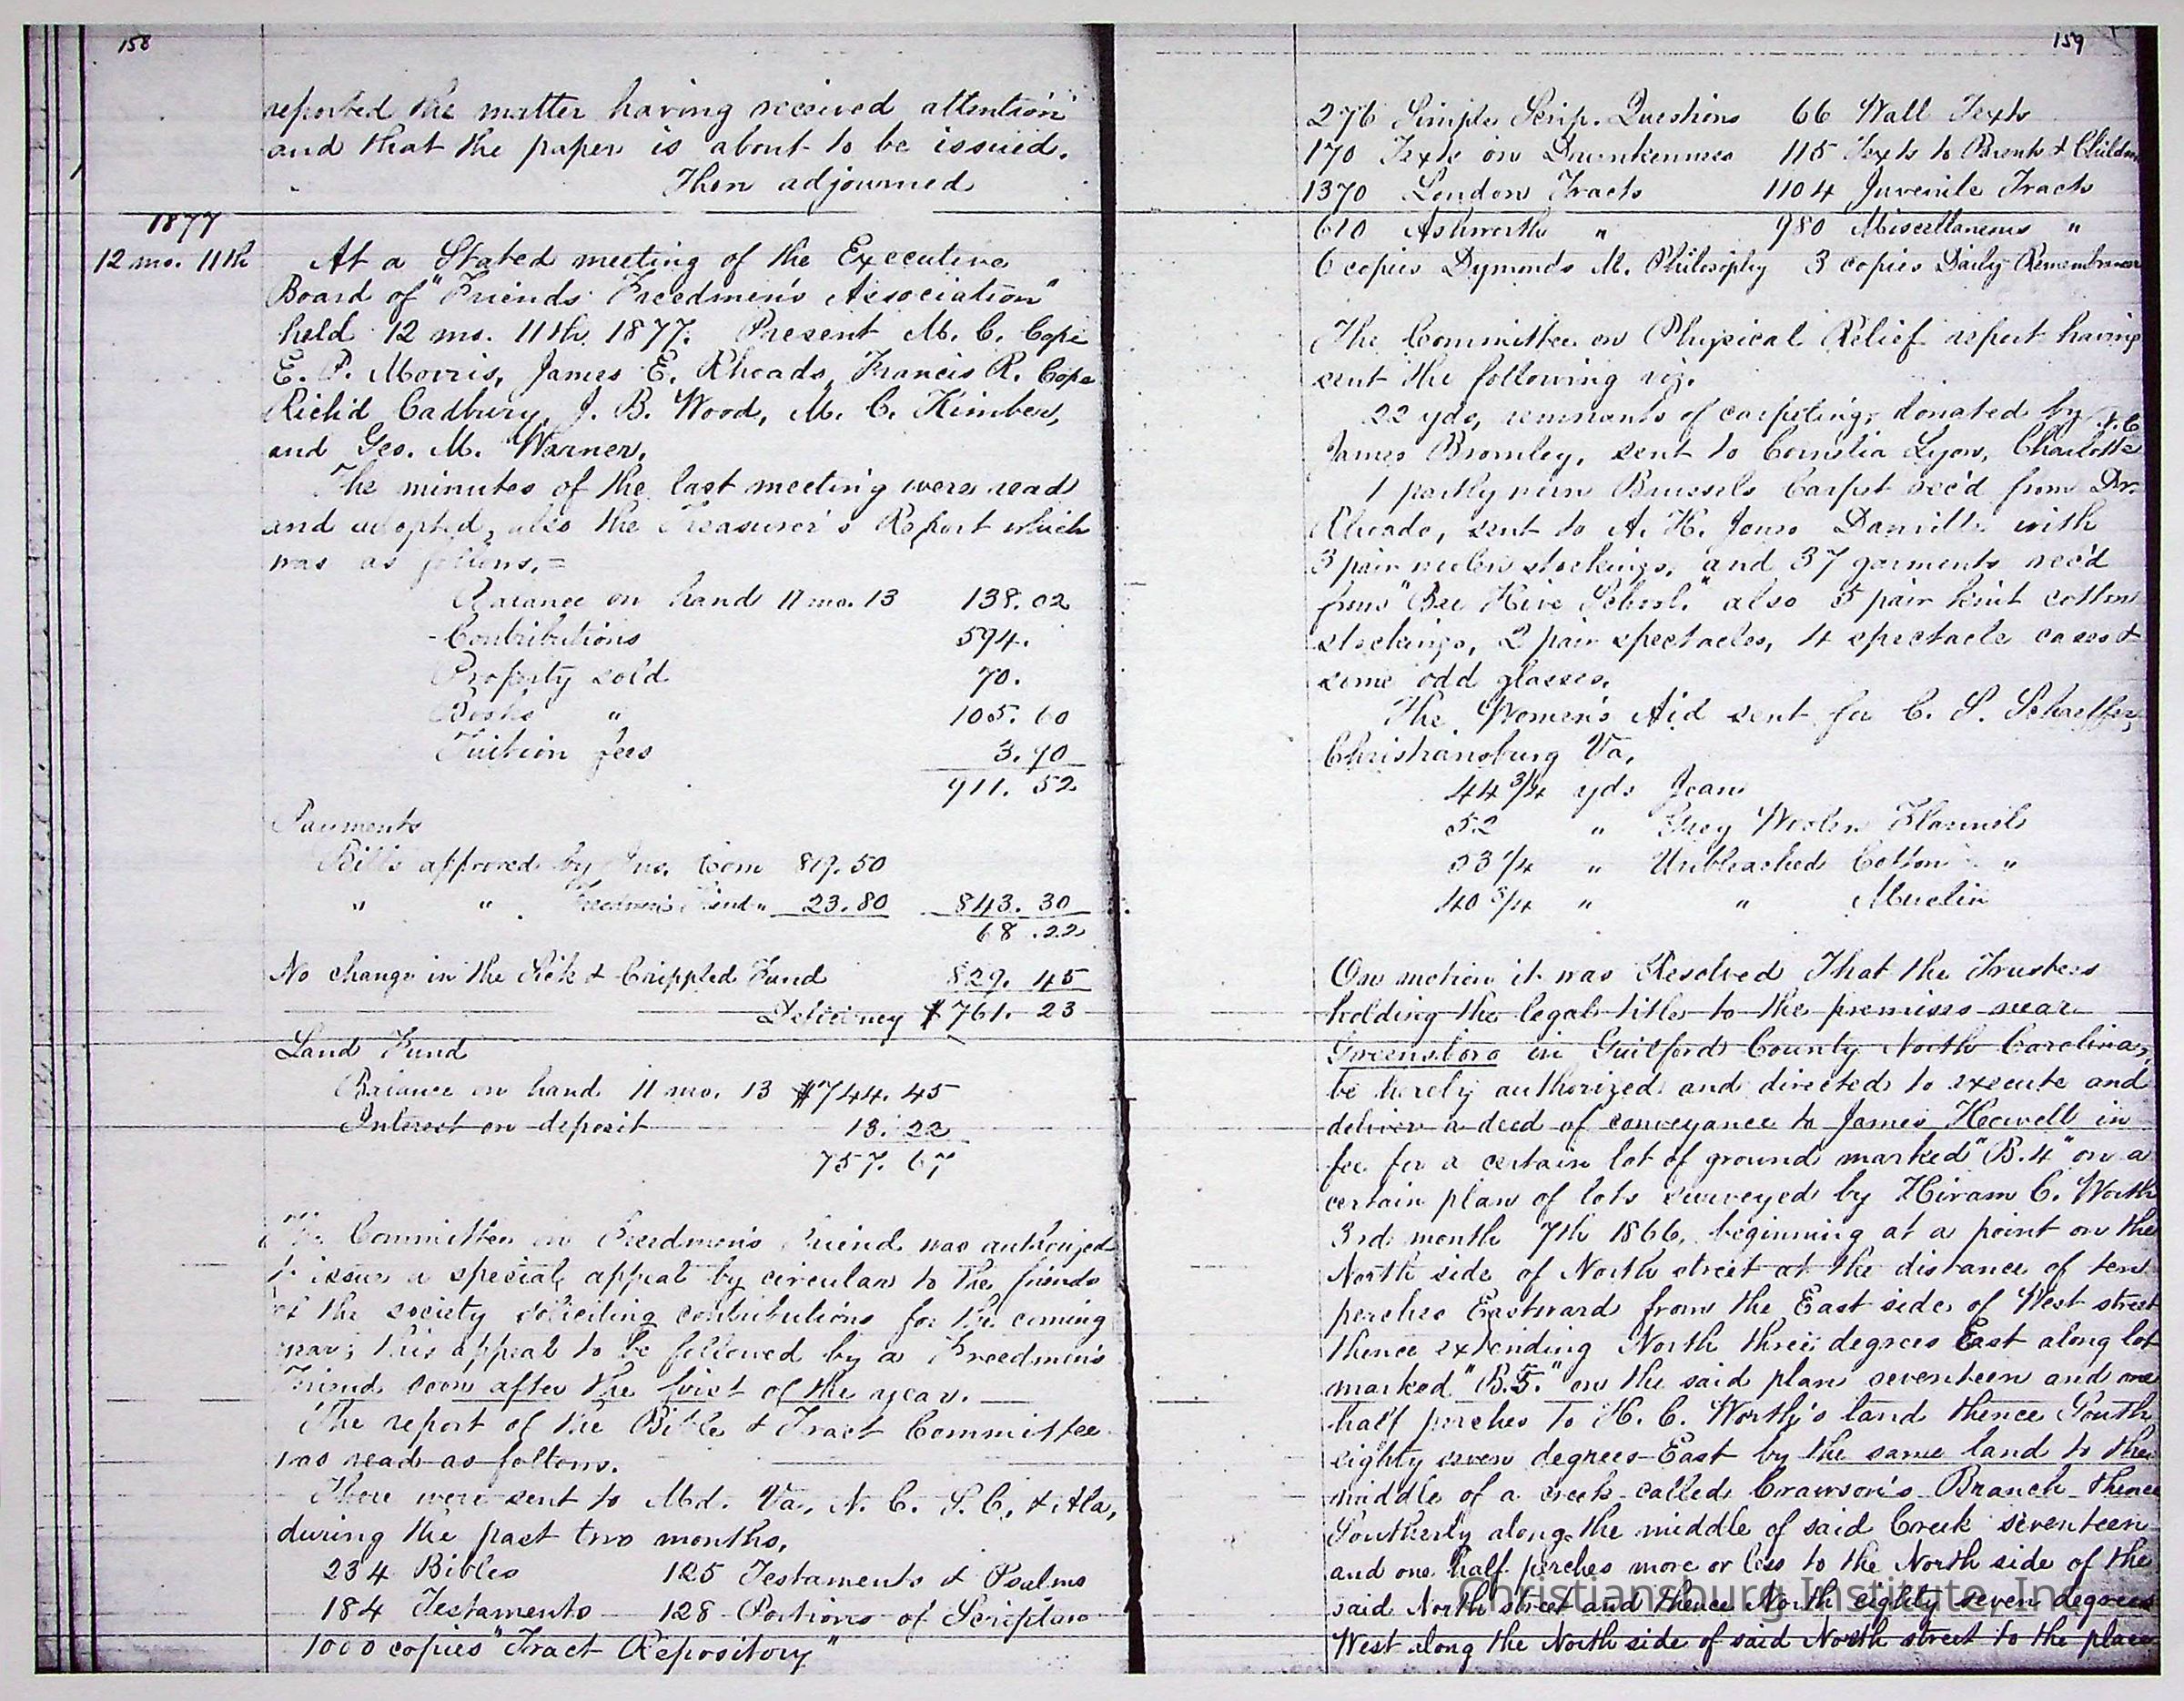 158
reported the matter having received attention
and that the paper is about to be issued.
Then adjourned
1877
12 mo. 11th At a Stated meeting of the Executive
Board of "Friends Freedmen's Association"
held 12 mo. 11th 1877. Present M. C. Cope
E. P. Morris, James E. Rhoads, Francis R. Cope
Rich'd Cadbury, J. B. Wood, M. C. Kimber,
and Geo. M. Warner.
The minutes of the last meeting were read
and adopted, also the Treasurer's Report which
was as follows,=
Balance on hand 11 mo. 13 138.02
Contributions 594.
Property sold 70.
Books " 105.60
Tuition fees 3.90
911.52
Payments
Bills approved by Ins. Com 819.50
" " Freedmen's Friend " 23.80 843.30
68.22
No change in the Sick & Crippled Fund 829.45
Deficiency $761.23
Land Fund
Balance on hand 11 mo. 13 $744.45
Interest on deposit 13.22
757.67
The Committee on Freedmen's Friend was authorized
to issue a special appeal by circular to the friends
of the society soliciting contributions for the coming
year; this appeal to be followed by a Freedmen's
Friend soon after the first of the year.
The report of the Bible & Tract Committee
was read as follows.
There were sent to Md. Va. N. C. S. C. & Ala,
during the past two months,
234 Bibles 125 Testaments & Psalms
184 Testaments 128 Portions of Scripture
1000 copies "Tract Repository"
159
276 Simple Scrip. Questions 66 Wall Texts
170 Texts on Drunkenness 115 Texts to Parents & Children
1370 London Tracts 1104 Juvenile Tracts
610 Ashworth " 980 Miscellaneous "
6 copies Dymonds M. Philosophy 3 copies Daily Remembrancer
The Committee on Physical Relief report having
sent the following viz.
22 yds, remnants of carpeting, donated by
James Bromley, sent to Cornelia Lyon, Charlotte N.C.
1 partly worn Brussels Carpet rec'd from Dr.
Rhoads, sent to A. H. Jones Danville with
3 pair woolen stockings, and 37 garments rec'd
from "Bee Hive School." also 5 pair knit cotton
stockings, 2 pair spectacles, 4 spectacle cases &
some odd glasses.
The Women's Aid sent for C. S. Schaeffer,
Christiansburg Va,
44 3/4 yds Jean
52 " Grey Woolen Flannel
53 1/4 " Unbleached Cotton "
40 3/4 " " Muslin
On motion it was Resolved That the Trustees
holding the legal title to the premises near
Greensboro in Guilford County North Carolina,
be hereby authorized and directed to execute and
deliver a deed of conveyance to James Howell in
fee for a certain lot of ground marked "B.4" on a
certain plan of lots surveyed by Hiram C. Worth
3rd month 7th 1866, beginning at a point on the
North side of North street at the distance of ten
perches Eastward from the East side of West street
thence extending North three degrees East along lot
marked "B.5." on the said plan seventeen and one
half perches to H. C. Worth's land thence South
eighty seven degrees East by the same land to the
middle of a creek called Crawson's Branch thence
Southerly along the middle of said Creek seventeen
and one half perches more or less to the North side of the
said North street and thence North eighty seven degrees
West along the North side of said North street to the place
Christiansburg Institute, Inc.